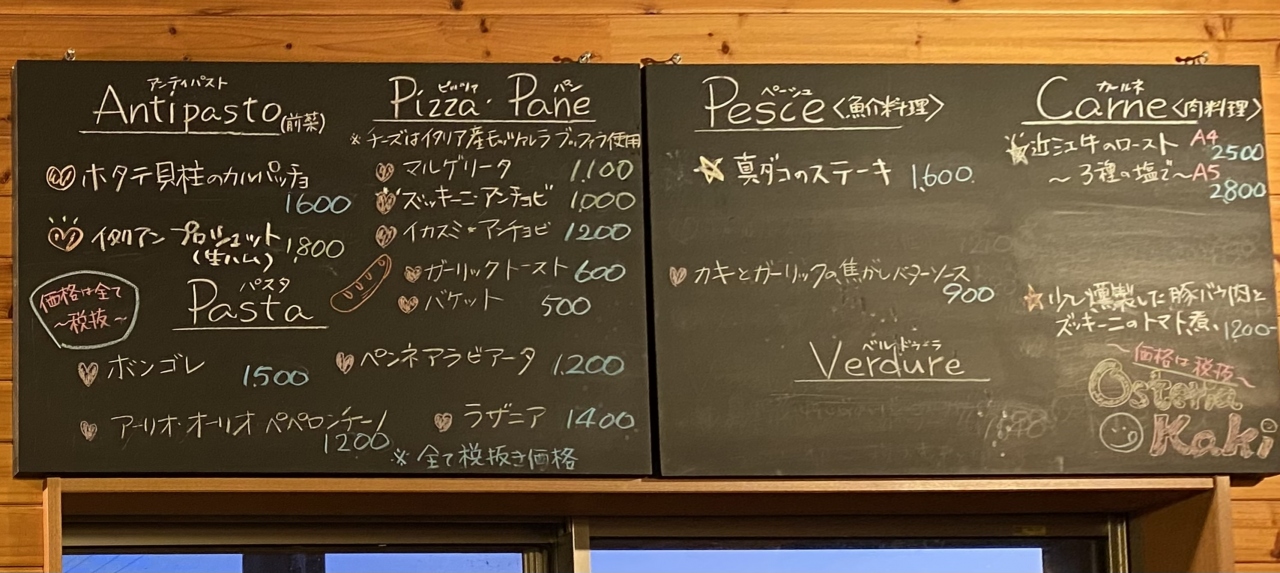 アンティパスト
Antipasto (前菜)
ホタテ貝柱のカルパッチョ
1600
イタリアン プロシュット 1,800
(生ハム)
価格は全て
～税抜～
パスタ
Pasta
ボンゴレ 1,500
アーリオ・オーリオ ペペロンチーノ
1200
ピッツァ パン
Pizza・Pane
※チーズはイタリア産モッツァレラ ブッファラ使用
マルゲリータ 1,100
ズッキーニ・アンチョビ 1,000
イカスミ・アンチョビ 1200
ガーリックトースト 600
バケット 500
ペンネアラビアータ 1,200
ラザニア 1400
※全て税抜き価格
ペーシェ
Pescie〈魚介料理〉
真ダコのステーキ 1,600
カキとガーリックの焦がしバターソース
900
ベルドゥーラ
Verdure
カールネ
Carne〈肉料理〉
近江牛のロースト A4
2500
～3種の塩で～A5
2800
少し燻製した豚バラ肉と
ズッキーニのトマト煮、1200-
～価格は税抜～
Osteria
Kaki